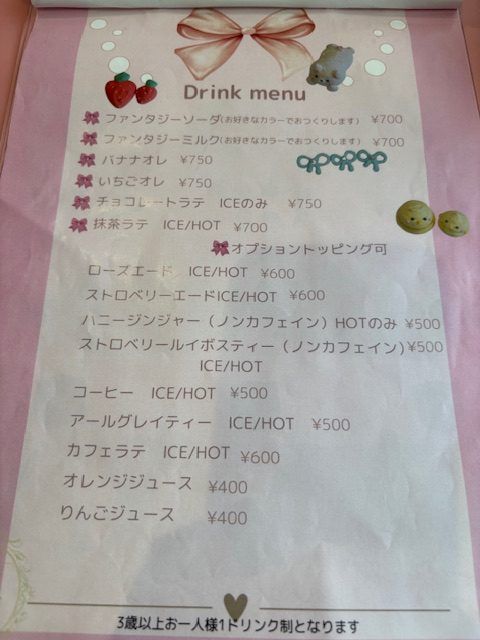 Drink menu
ファンタジーソーダ(お好きなカラーでおつくりします) ¥700
ファンタジーミルク(お好きなカラーでおつくりします) ¥700
バナナオレ ¥750
いちごオレ ¥750
チョコレートラテ ICEのみ ¥750
抹茶ラテ ICE/HOT ¥700
オプショントッピング可
ローズエード ICE/HOT ¥600
ストロベリーエードICE/HOT ¥600
ハニージンジャー（ノンカフェイン）HOTのみ ¥500
ストロベリールイボスティー（ノンカフェイン）¥500
ICE/HOT
コーヒー ICE/HOT ¥500
アールグレイティー ICE/HOT ¥500
カフェラテ ICE/HOT ¥600
オレンジジュース ¥400
りんごジュース ¥400
3歳以上お一人様1ドリンク制となります